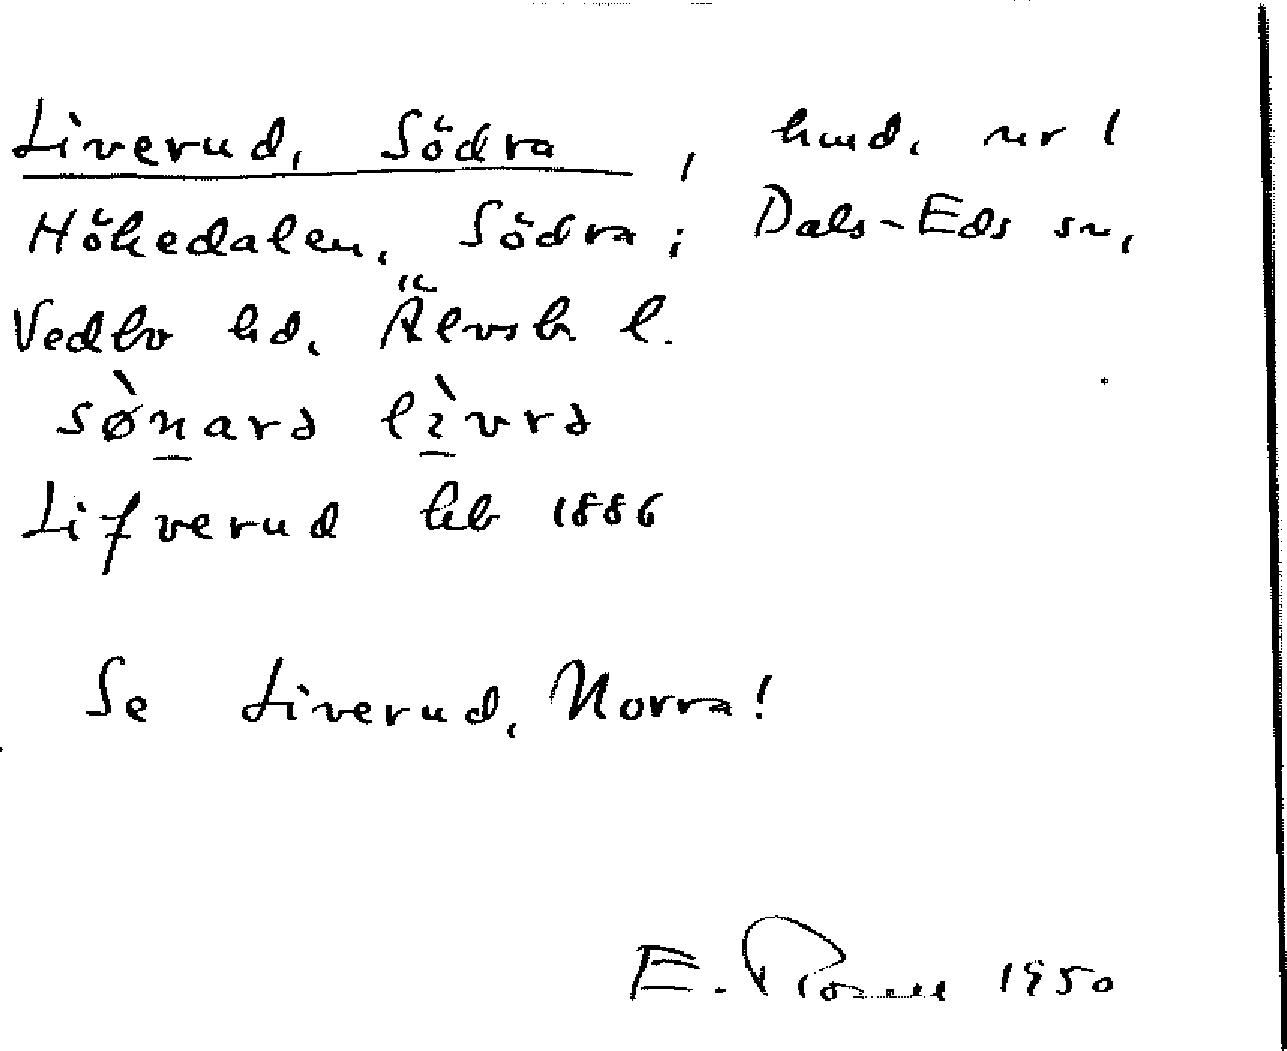 Liverud, Södra, hmd. nr 1
Hökedalen, Södra; Dals-Eds sn,
Vedbo hd. Älvsb l.
sø̀narə lìvrə
Lifverud kb 1886
Se Liverud, Norra!
E. 1950